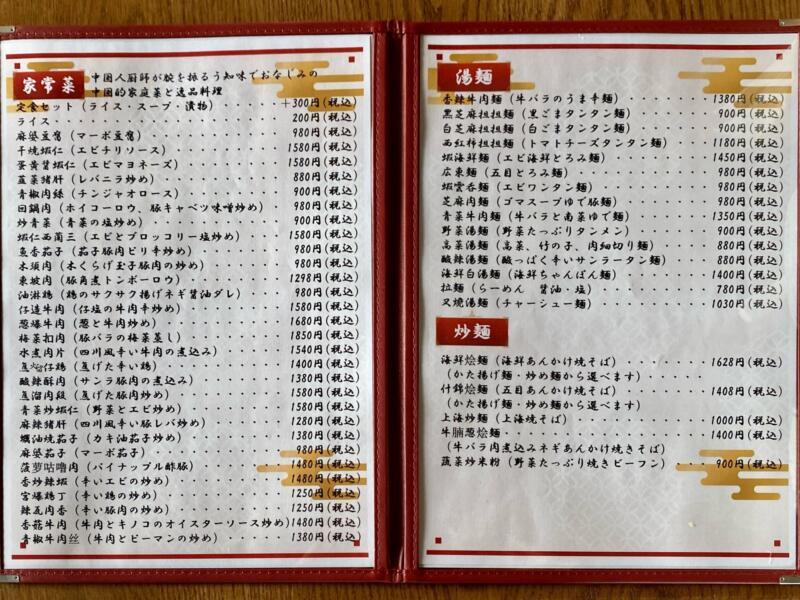 家常菜
中国人厨師が腕を振るう知味でおなじみの
中国的家庭菜と逸品料理
定食セット(ライス・スープ・漬物)・・・・・・+300円(税込)
ライス・・・・・・・・・・・・・・・・・200円(税込)
麻婆豆腐(マーボ豆腐)・・・・・・・・・・980円(税込)
干焼蝦仁(エビチリソース)・・・・・・・・1580円(税込)
蛋黄醤蝦仁(エビマヨネーズ)・・・・・・・1580円(税込)
韮菜猪肝(レバニラ炒め)・・・・・・・・・880円(税込)
青椒肉絲(チンジャオロース)・・・・・・・900円(税込)
回鍋肉(ホイコーロウ、豚キャベツ味噌炒め)・・980円(税込)
炒青菜(青菜の塩炒め)・・・・・・・・・・900円(税込)
蝦仁西蘭三(エビとブロッコリー塩炒め)・・・1580円(税込)
魚香茄子(茄子豚肉ピリ辛炒め)・・・・・・980円(税込)
木須肉(木くらげ玉子豚肉の炒め)・・・・・980円(税込)
東坡肉(豚角煮トンポーロウ)・・・・・・・1298円(税込)
油淋鶏(鶏のサクサク揚げネギ醤油ダレ)・・・980円(税込)
仔逵牛肉(仔塩の牛肉辛炒め)・・・・・・・1580円(税込)
葱爆牛肉(葱と牛肉炒め)・・・・・・・・・1680円(税込)
梅菜扣肉(豚バラの梅菜蒸し)・・・・・・・1850円(税込)
水煮肉片(四川風辛い牛肉の煮込み)・・・・1540円(税込)
仔鶏(魚げた辛い鶏)・・・・・・・・・・1400円(税込)
酸辣酥肉(サンラ豚肉の煮込み)・・・・・・1380円(税込)
魚溜肉段(魚げた豚肉炒め)・・・・・・・・1580円(税込)
青菜炒蝦仁(野菜とエビ炒め)・・・・・・・1580円(税込)
麻辣猪肝(四川風辛い豚レバ炒め)・・・・・1280円(税込)
蠣油焼茄子(カキ油茄子炒め)・・・・・・・1380円(税込)
麻婆茄子(マーボ茄子)・・・・・・・・・・980円(税込)
菠萝咕噜肉(パイナップル酢豚)・・・・・・1480円(税込)
香炒辣蝦(辛いエビの炒め)・・・・・・・・1480円(税込)
宮爆鶏丁(辛い鶏の炒め)・・・・・・・・・1250円(税込)
辣瓦肉香(辛い豚肉の炒め)・・・・・・・・1250円(税込)
香菇牛肉(牛肉とキノコのオイスターソース炒め)1480円(税込)
青椒牛肉丝(牛肉とピーマンの炒め)・・・・1380円(税込)
湯麺
香辣牛肉麺(牛バラのうま辛麺)・・・・・・1380円(税込)
黒芝麻担担麺(黒ごまタンタン麺)・・・・・900円(税込)
白芝麻担担麺(白ごまタンタン麺)・・・・・900円(税込)
西紅柿担担麺(トマトチーズタンタン麺)・・・1180円(税込)
蝦海鮮麺(エビ海鮮とろみ麺)・・・・・・・1450円(税込)
広東麺(五目とろみ麺)・・・・・・・・・・980円(税込)
蝦雲呑麺(エビワンタン麺)・・・・・・・・980円(税込)
芝麻肉麺(ゴマスープゆで豚麺)・・・・・・980円(税込)
青菜牛肉麺(牛バラと南菜ゆで麺)・・・・・1350円(税込)
野菜湯麺(野菜たっぷりタンメン)・・・・・900円(税込)
高菜湯麺(高菜、竹の子、肉細切り麺)・・・880円(税込)
酸辣湯麺(酸っぱく辛いサンラータン麺)・・・880円(税込)
海鮮白湯麺(海鮮ちゃんぽん麺)・・・・・・1400円(税込)
拉麺(らーめん 醤油・塩)・・・・・・・・780円(税込)
叉焼湯麺(チャーシュー麺)・・・・・・・・1030円(税込)
炒麺
海鮮烩麺(海鮮あんかけ焼そば)・・・・・・1628円(税込)
(かた揚げ麺・炒め麺から選べます)・・・・
什錦烩麺(五目あんかけ焼そば)・・・・・・1408円(税込)
(かた揚げ麺・炒め麺から選べます)
上海炒麺(上海焼そば)・・・・・・・・・・1000円(税込)
牛腩葱烩麺・・・・・・・・・・・・・・・1400円(税込)
(牛バラ肉煮込みネギあんかけ焼きそば)
蔬菜炒米粉(野菜たっぷり焼きビーフン)・・・900円(税込)